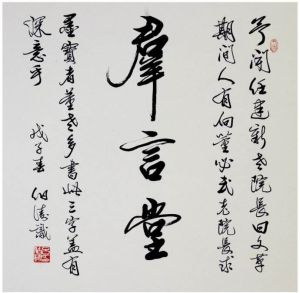 予闻任建新老院长曰文革
期间人有向董必武老院长求
羣言堂
墨宝者董老多书此三字盖有
深意乎
戊子春